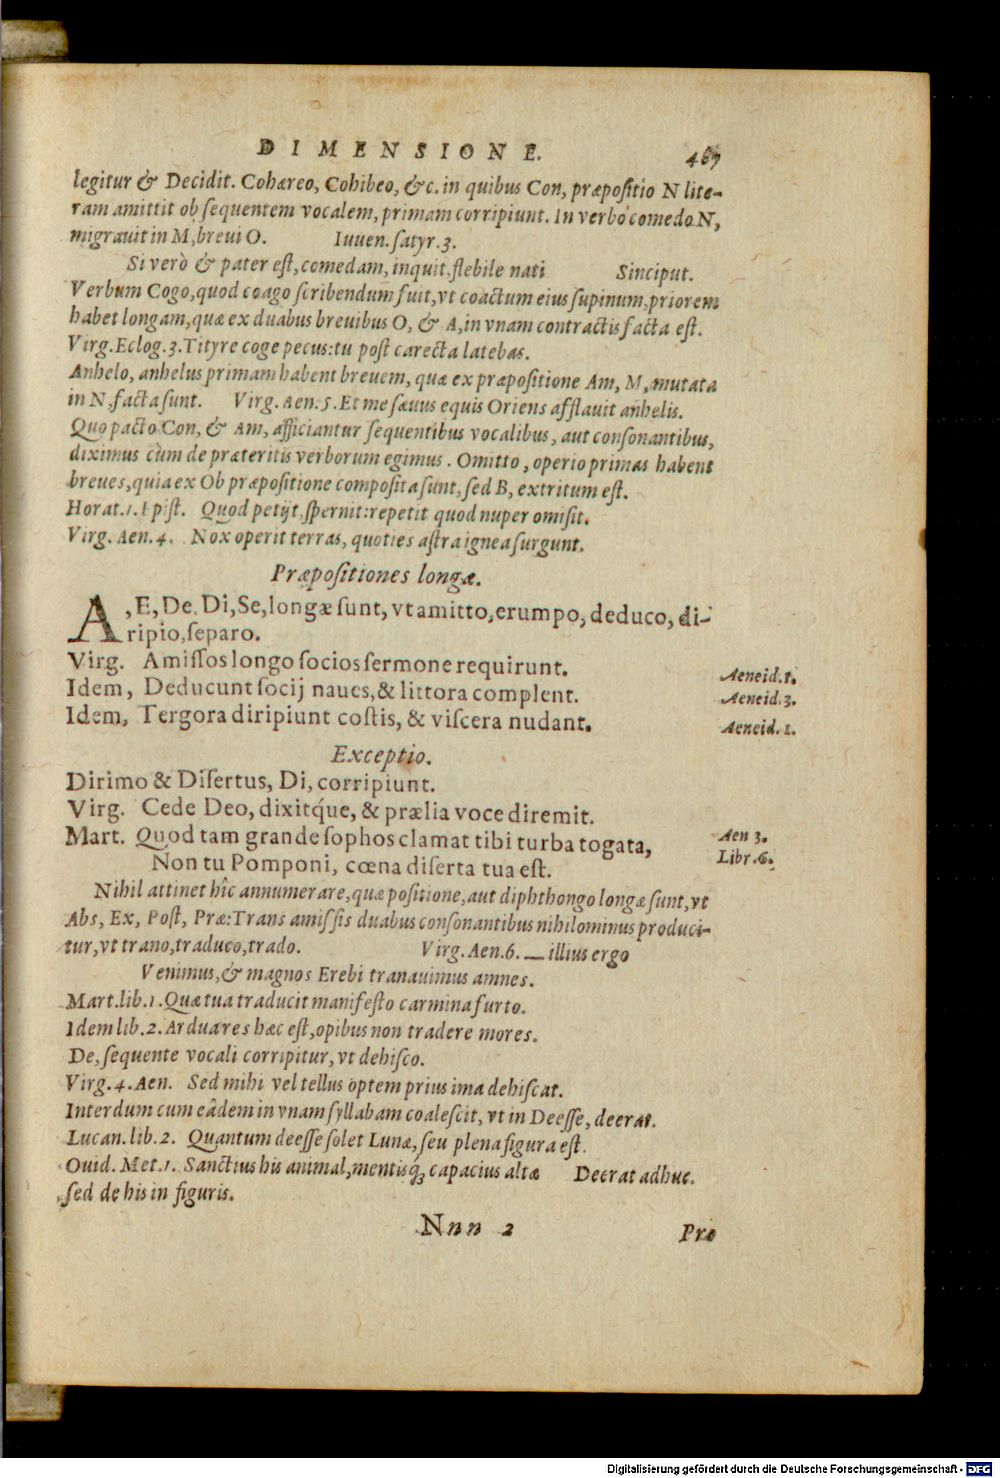 DIMENSIONE. 467
legitur & Decidit. Cohæreo, Cohibeo, &c. in quibus Con, præpositio N lite-
ram amittit ob sequentem vocalem, primam corripiunt. In verbo comedo N,
migrauit in M, breui O. Iuuen. satyr. 3.
Si verò & pater est, comedam, inquit, flebile nati Sinciput.
Verbum Cogo, quod coago scribendum fuit, vt coactum eius supinum, priorem
habet longam, quæ ex duabus breuibus O, & A, in vnam contractis facta est.
Virg. Eclog. 3. Tityre coge pecus: tu post carecta latebas.
Anhelo, anhelus primam habent breuem, quæ ex præpositione Am, M, mutata
in N, facta sunt. Virg. Aen. 5. Et me sæuus equis Oriens afflauit anhelis.
Quo pacto Con, & Am, afficiantur sequentibus vocalibus, aut consonantibus,
diximus cùm de præteritis verborum egimus. Omitto, operio primas habent
breues, quia ex Ob præpositione composita sunt, sed B, extritum est.
Horat. 1. Epist. Quod petijt, spernit: repetit quod nuper omisit.
Virg. Aen. 4. Nox operit terras, quoties astra ignea surgunt.
Præpositiones longæ.
A, E, De, Di, Se, longæ sunt, vt amitto, erumpo, deduco, di-
ripio, separo.
Virg. Amissos longo socios sermone requirunt. Aeneid. 1.
Idem, Deducunt socij naues, & littora complent. Aeneid. 3.
Idem, Tergora diripiunt costis, & viscera nudant. Aeneid. 1.
Exceptio.
Dirimo & Disertus, Di, corripiunt.
Virg. Cede Deo, dixitq́ue, & prælia voce diremit.
Mart. Quod tam grande sophos clamat tibi turba togata, Aen 3.
Non tu Pomponi, cœna diserta tua est. Libr. 6.
Nihil attinet hîc annumerare, quæ positione, aut diphthongo longæ sunt, vt
Abs, Ex, Post, Præ: Trans amissis duabus consonantibus nihilominus produci-
tur, vt trano, traduco, trado. Virg. Aen. 6. — illius ergo
Venimus, & magnos Erebi tranauimus amnes.
Mart. lib. 1. Quæ tua traducit manifesto carmina furto.
Idem lib. 2. Ardua res hæc est, opibus non tradere mores.
De, sequente vocali corripitur, vt dehisco.
Virg. 4. Aen. Sed mihi vel tellus optem prius ima dehiscat.
Interdum cum eâdem in vnam syllabam coalescit, vt in Deesse, deerat.
Lucan. lib. 2. Quantum deesse solet Lunæ, seu plena figura est.
Ouid. Met. 1. Sanctius his animal, mentisq́; capacius altæ Deerat adhuc.
sed de his in figuris.
Nnn 2 Præ
Digitalisierung gefördert durch die Deutsche Forschungsgemeinschaft - DFG